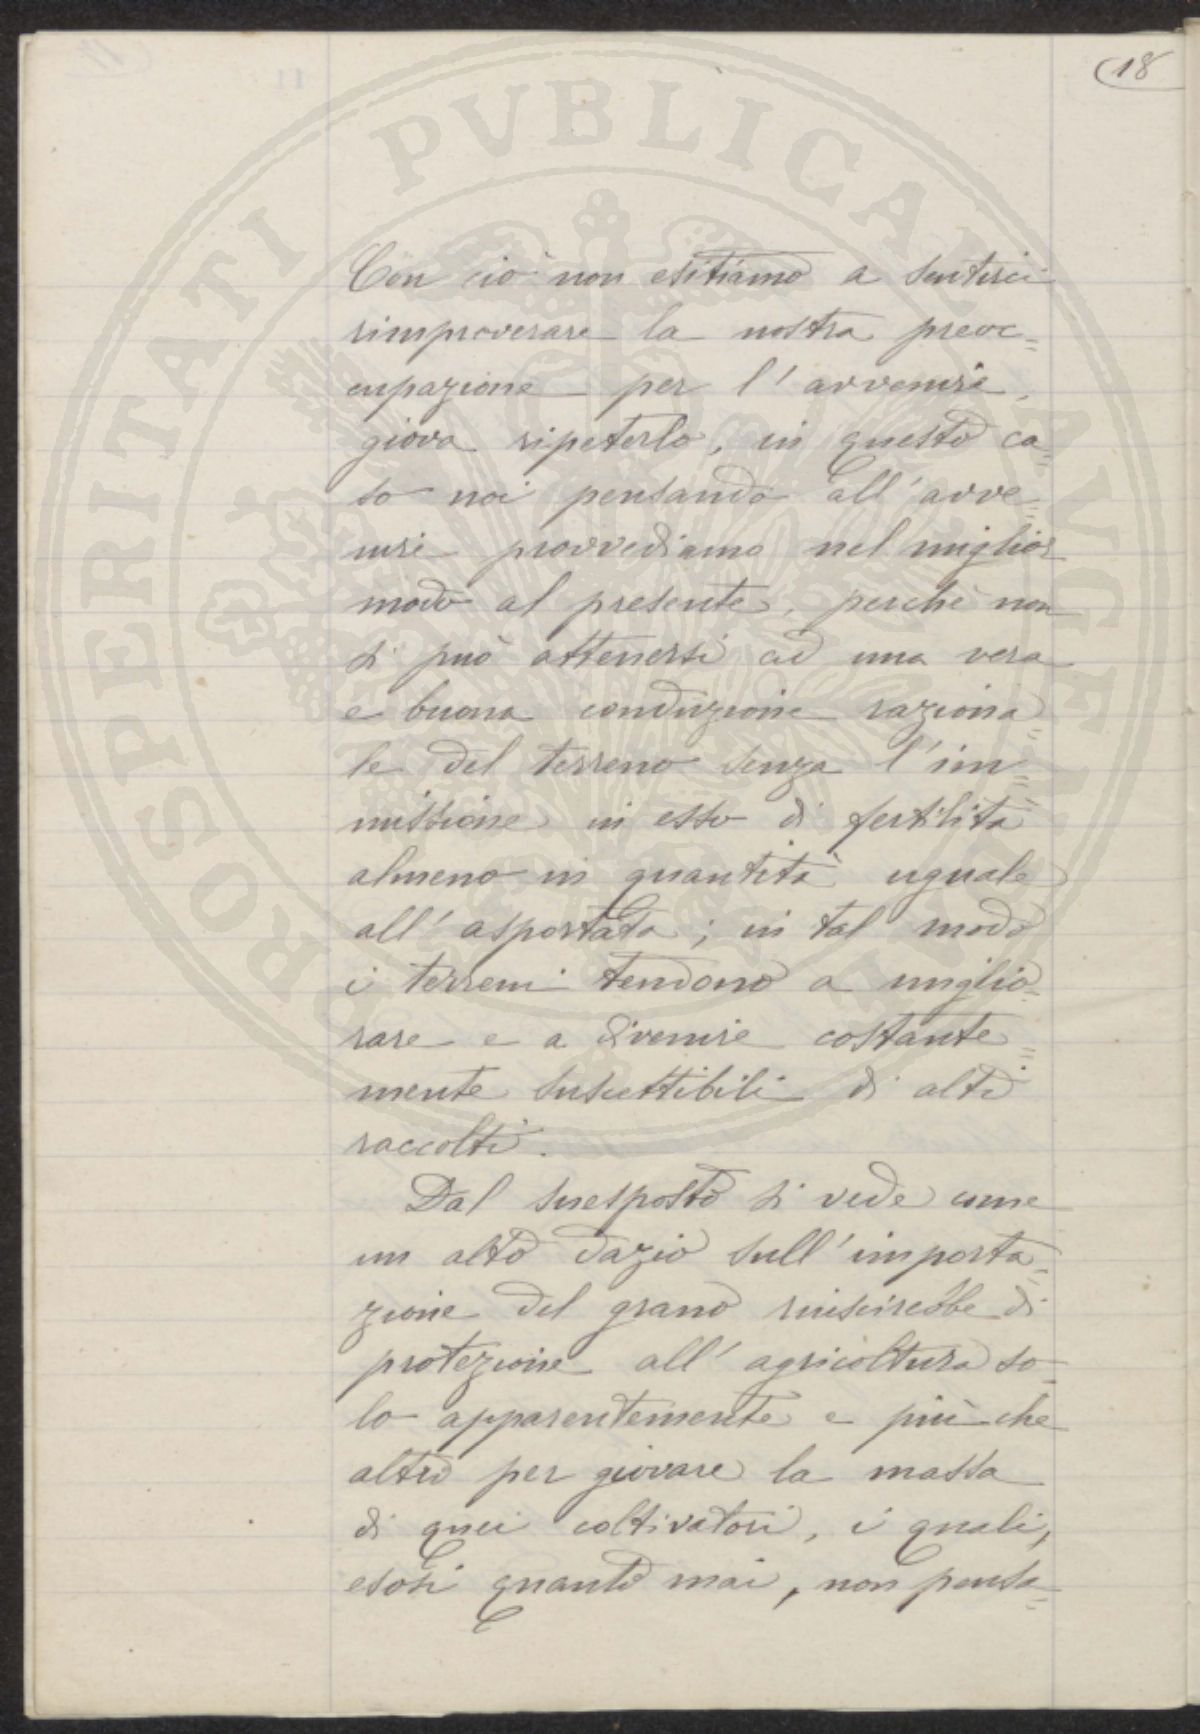 18
Con ciò non esitiamo a sentirci
rimproverare la nostra preoc=
cupazione per l'avvenire,
giova ripeterlo, in questo ca=
so noi pensando all'avve=
nire provvediamo nel miglior
modo al presente, perchè non
si può attenersi ad una vera
e buona conduzione raziona=
le del terreno senza l'im=
missione in esso di fertilità
almeno in quantità uguale
all'asportata; in tal modo
i terreni tendono a miglio=
rare e a divenire costante=
mente suscettibili di alti
raccolti.
Dal suesposto si vede come
un alto dazio sull'importa=
zione del grano riuscirebbe di
protezione all'agricoltura so=
lo apparentemente e più che
altro per giovare la massa
di quei coltivatori, i quali,
esosi quanto mai, non pensa=
PROSPERITATI PVBLICAE AVGENDAE